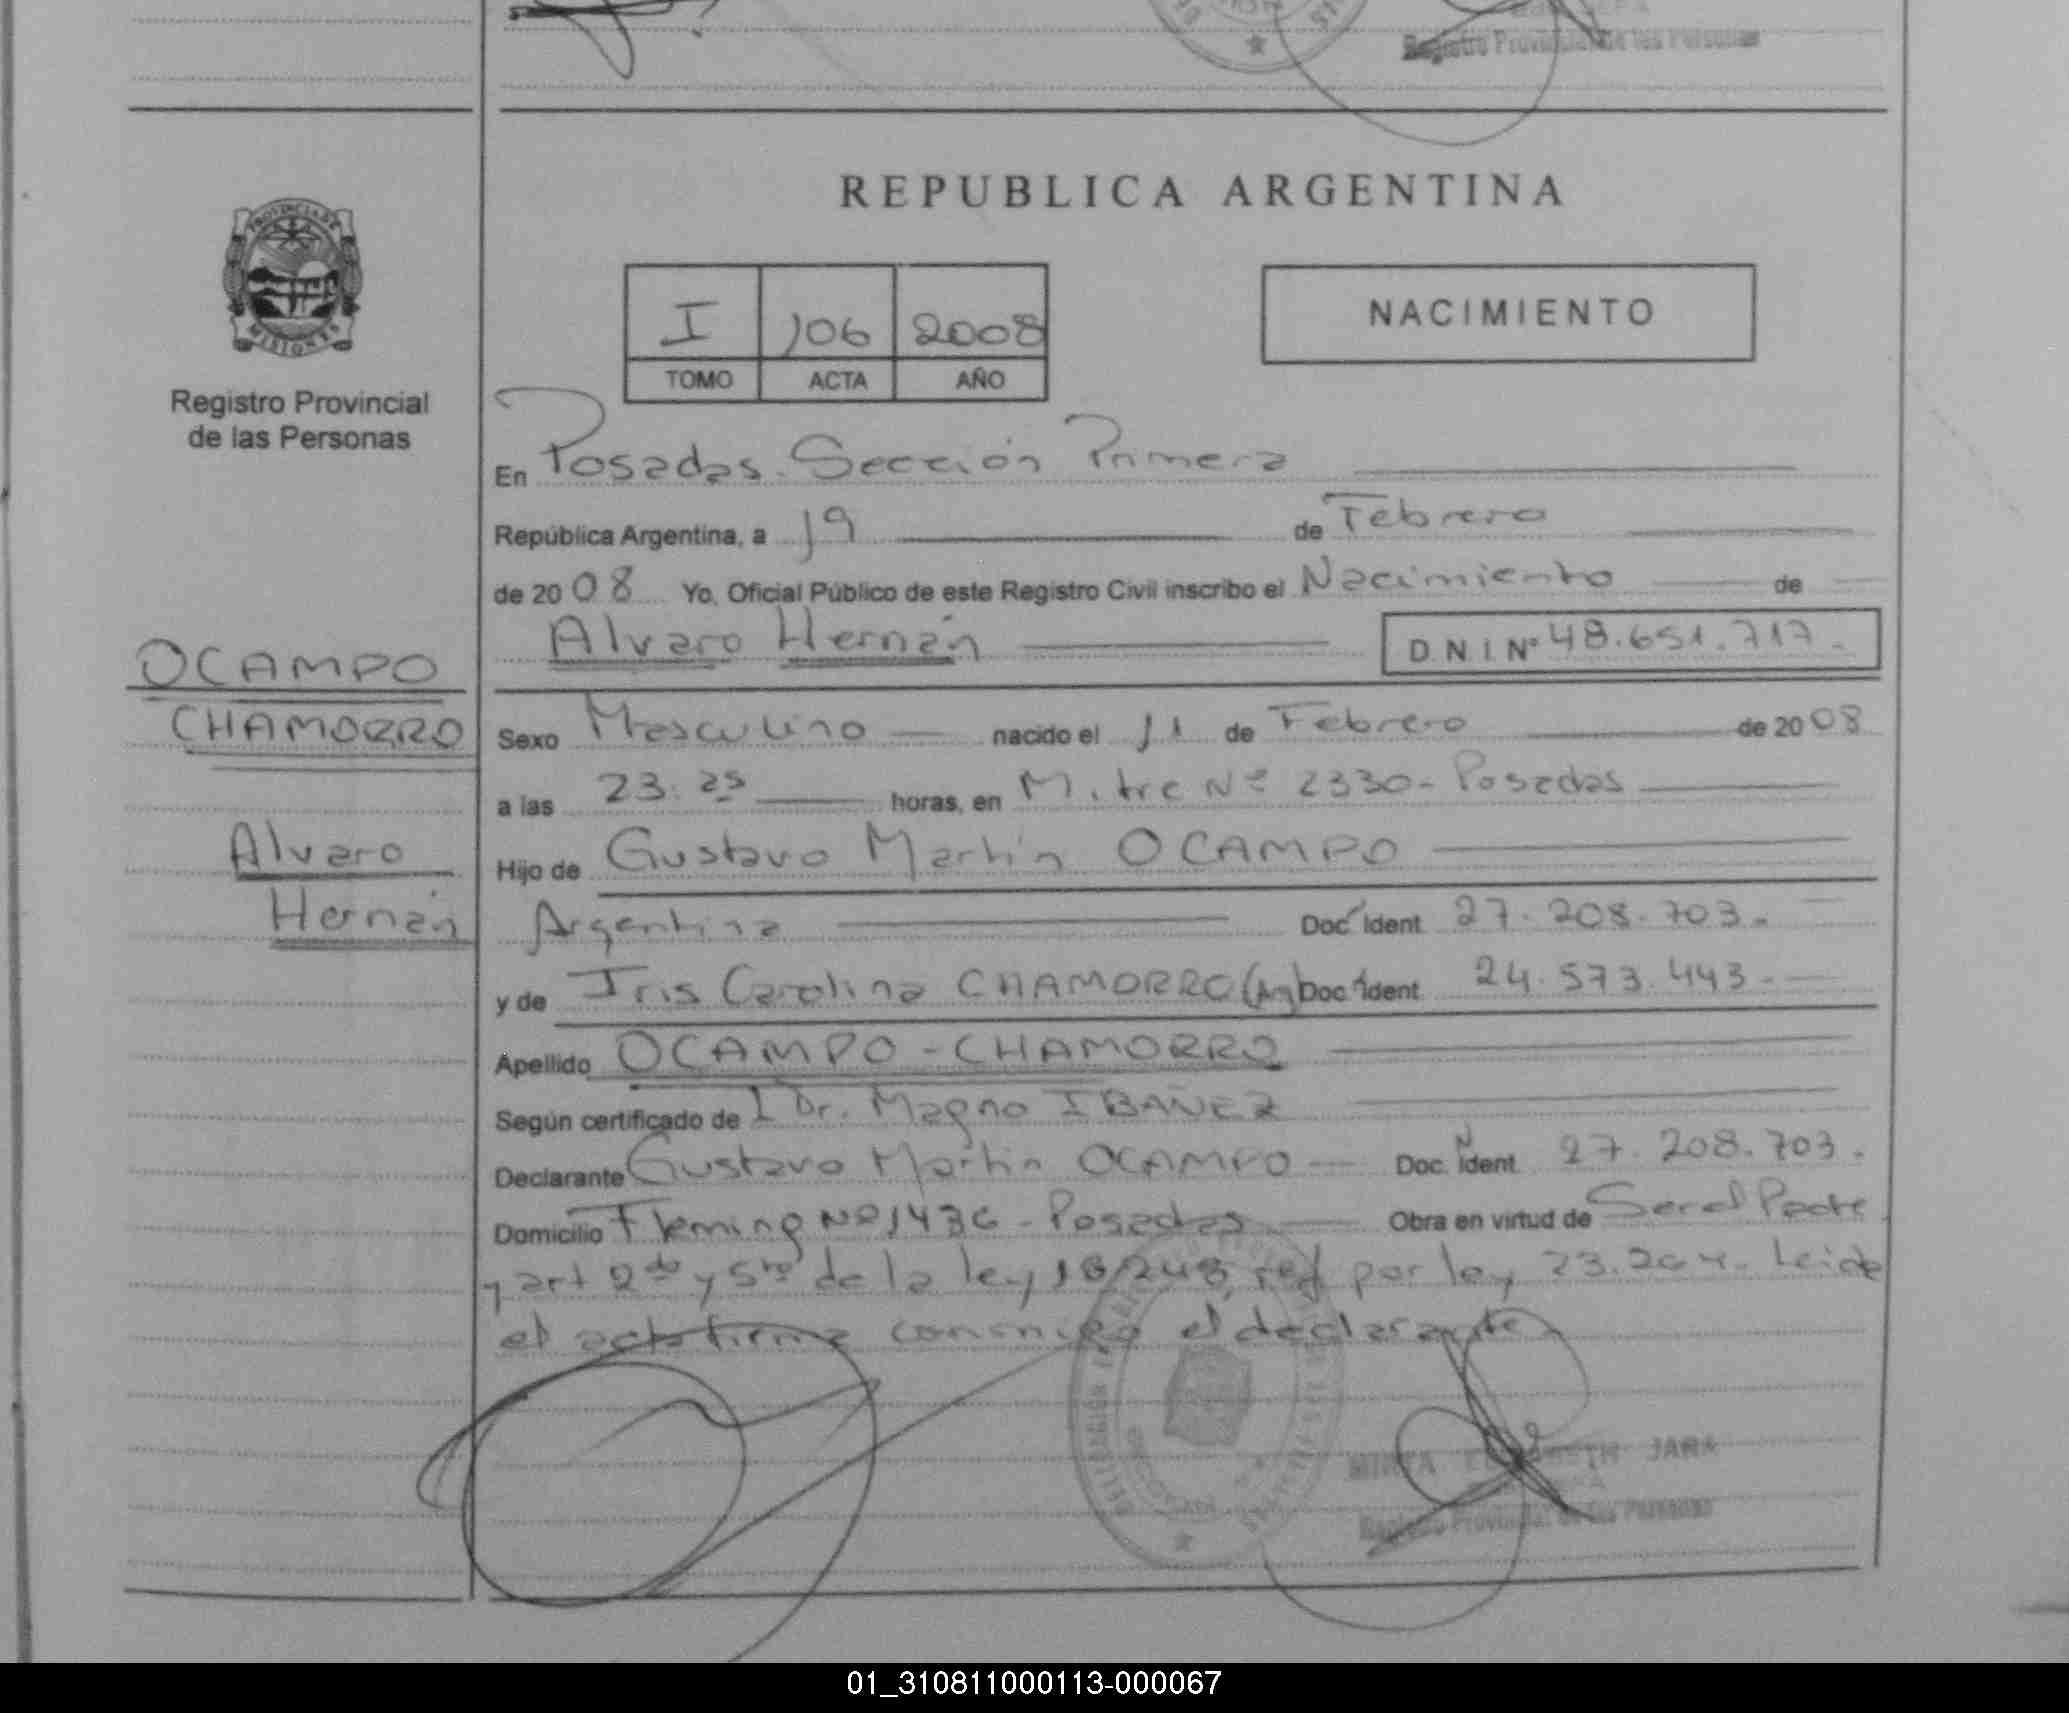 Registro Provincial de las Personas
PROVINCIA DE
MISIONES
Registro Provincial
de las Personas
OCAMPO
CHAMORRO
Alvaro
Hernán
REPUBLICA ARGENTINA
I 106 2008
TOMO ACTA AÑO
NACIMIENTO
En Posadas. Sección Primera
República Argentina, a 19 de Febrero
de 2008 Yo, Oficial Público de este Registro Civil inscribo el Nacimiento de
Alvaro Hernán D.N.I. Nº 48.651.717.-
Sexo Masculino nacido el 11 de Febrero de 2008
a las 23:25 horas, en Mitre Nº 2330- Posadas
Hijo de Gustavo Martín OCAMPO
Argentina Doc Ident 27.208.703.-
y de Iris Carolina CHAMORRO (Arg) Doc Ident 24.573.443.-
Apellido OCAMPO-CHAMORRO
Según certificado de Dr. Magno IBAÑEZ
Declarante Gustavo Martín OCAMPO Doc. Ident. 27.208.703.
Domicilio Fleming Nº 1436 - Posadas Obra en virtud de Ser el Padre
y art 2do y 5to de la ley 18.248, ref por ley 23.264.- Leida
el acta firma conmigo el declarante
MIRTA ELIZABETH JARA
Registro Provincial de las Personas
01_310811000113-000067